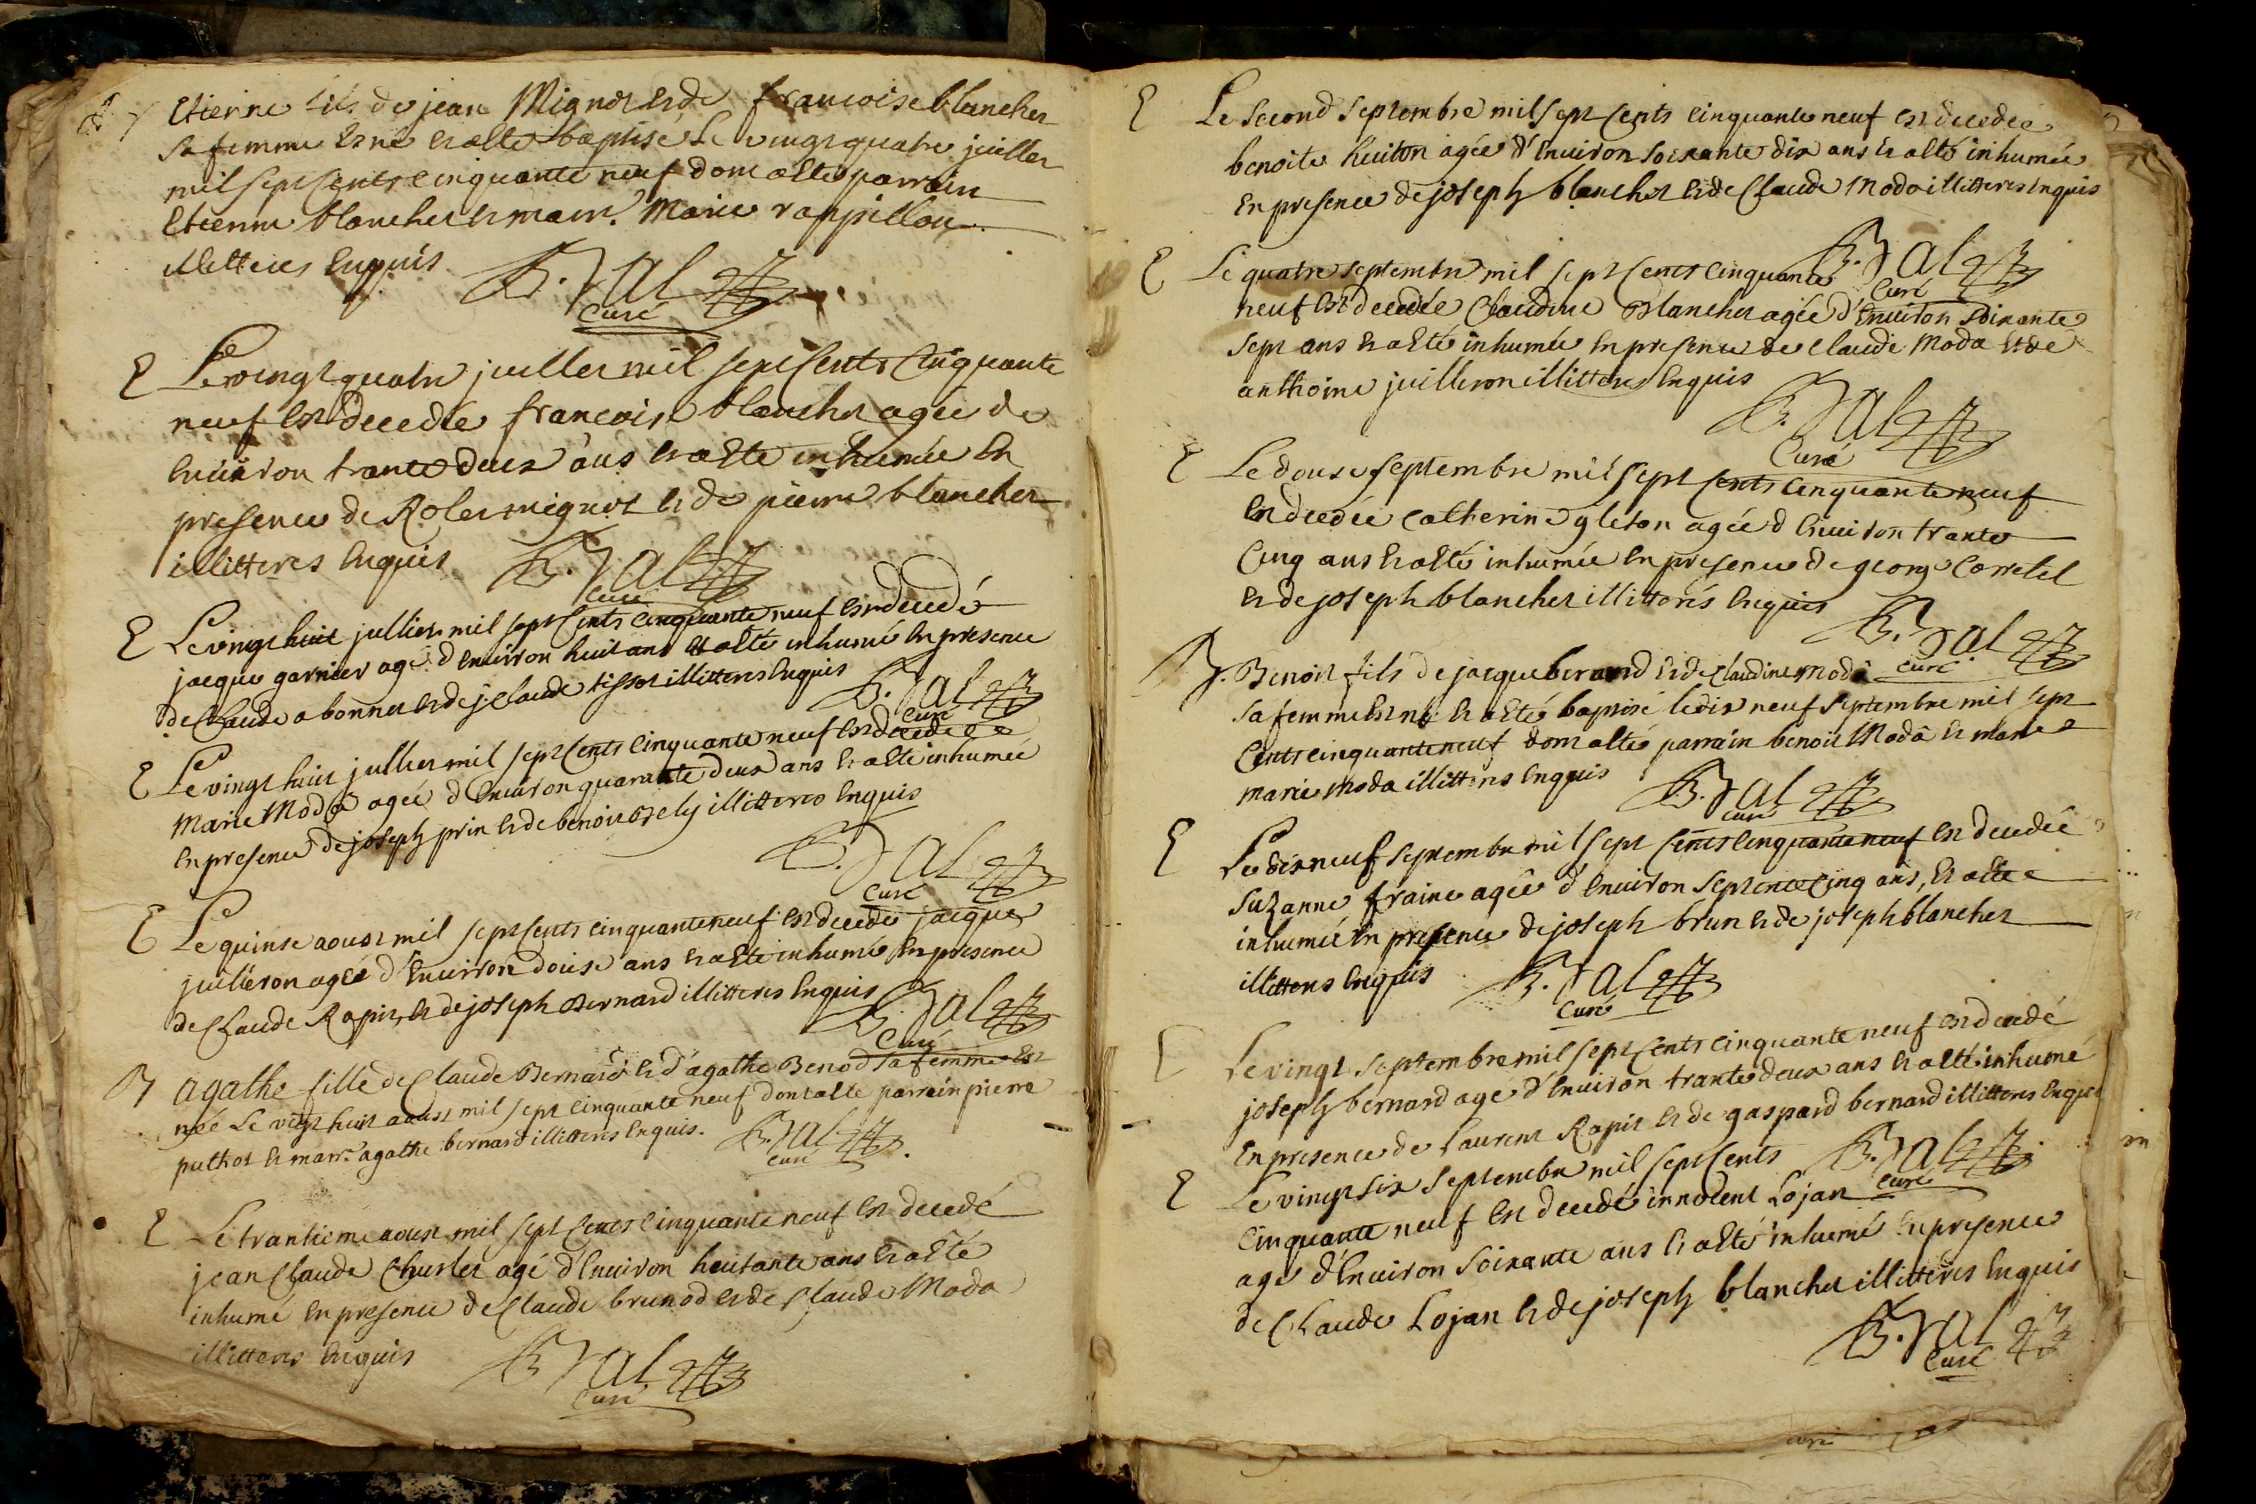 B Etienne fils de jean Mignot Et de francoise blanchet
sa femme Est né Et a Eté baptisé Le vingt quatre juillet
mil sept Cents cinquante neuf dont a Eté parrain
Etienne blanchet Et marr. Marie rappillon
illitteres Enquis B. Jal
Curé
E Le vingt quatre juillet mil sept Cents Cinquante
neuf Est decedée francoise blanchet agée de
Environ trante deux ans Et a Eté inhumée En
presence de Rolet mignot Et de pierre blanchet
illitteres Enquis B. Jal
Curé
E Le vingt huit jullier mil sept Cents Cinquante neuf Est decedé
jacque garnier agé d'Environ huit ans Et a Eté inhumé En presence
de Claude abonnet Et de j. Claude tissot illitteres Enquis B. Jal
Curé
E Le vingt huit jullier mil sept Cents Cinquante neuf Est decedée
Marie Moda agée d'Environ quarante deux ans Et a Eté inhumée
En presence de joseph prin Et de benoit illitteres Enquis
B. Jal
Curé
E Le quinse aoust mil sept Cents cinquante neuf Est decedé jacque
juilleron agé d'Environ douse ans Et a Eté inhumé En presence
de Claude Rapit, Et de joseph Bernard illitteres Enquis B. Jal
Curé
B agathe fille de Claude Bernard Et d'agathe Benod sa femme Est
née Le vingt huit aoust mil sept cinquante neuf dont a Eté parrain pierre
puthot Et marr. agathe bernard illitteres Enquis. B. Jal
curé
E Le trantieme aoust mil sept Cents Cinquante neuf Est decedé
jean Claude agé d'Environ huitante ans Et a Eté
inhumé En presence de Claude brunod Et de Claude Moda
illitteres Enquis B. Jal
Curé
E Le second septembre mil sept Cents Cinquante neuf Est decedée
benoite agée d'Environ soixante dix ans Et a Eté inhumée
En presence de joseph blanchet Et de Claude Moda illitteres Enquis
B. Jal
Curé
E Le quatre septembre mil sept Cents Cinquante
neuf Est decedée Claudine Blanchet agée d'Environ soixante
sept ans Et a Eté inhumée En presence de Claude Moda Et de
anthoine juilleron illitteres Enquis
B. Jal
Curé
E Le douse septembre mil sept Cents Cinquante neuf
Est decedée Catherine gleton agée d'Environ trante
Cinq ans Et a Eté inhumée En presence de george
Et de joseph blanchet illitterés Enquis B. Jal
Curé
B. Benoit fils de jacque berard Et de Claudine Moda
sa femme Est né Et a Eté baptisé le dix neuf septembre mil sept
Cents cinquante neuf dont a Eté parrain benoit Moda Et marre
marie Moda illitteres Enquis B. Jal
curé
E Le dix neuf septembre mil sept Cents Cinquante neuf Est decedée
Suzanne fraine agée d'Environ septente Cinq ans, Et a Eté
inhumée En presence de joseph brun Et de joseph blanchet
illitteres Enquis B. Jal
Curé
E Le vingt septembre mil sept Cents Cinquante neuf Est decedé
joseph bernard agé d'Environ trante deux ans Et a Eté inhumé
En presence de Laurent Rapit Et de gaspard bernard illitteres Enquis
B. Jal
Curé
E Le vingt six septembre mil sept Cents
Cinquante neuf Est decedé innocent Lojan
agé d'Environ soixante ans Et a Eté inhumé En presence
de Claude Lojan Et de joseph blanchet illitteres Enquis
B. Jal
Curé